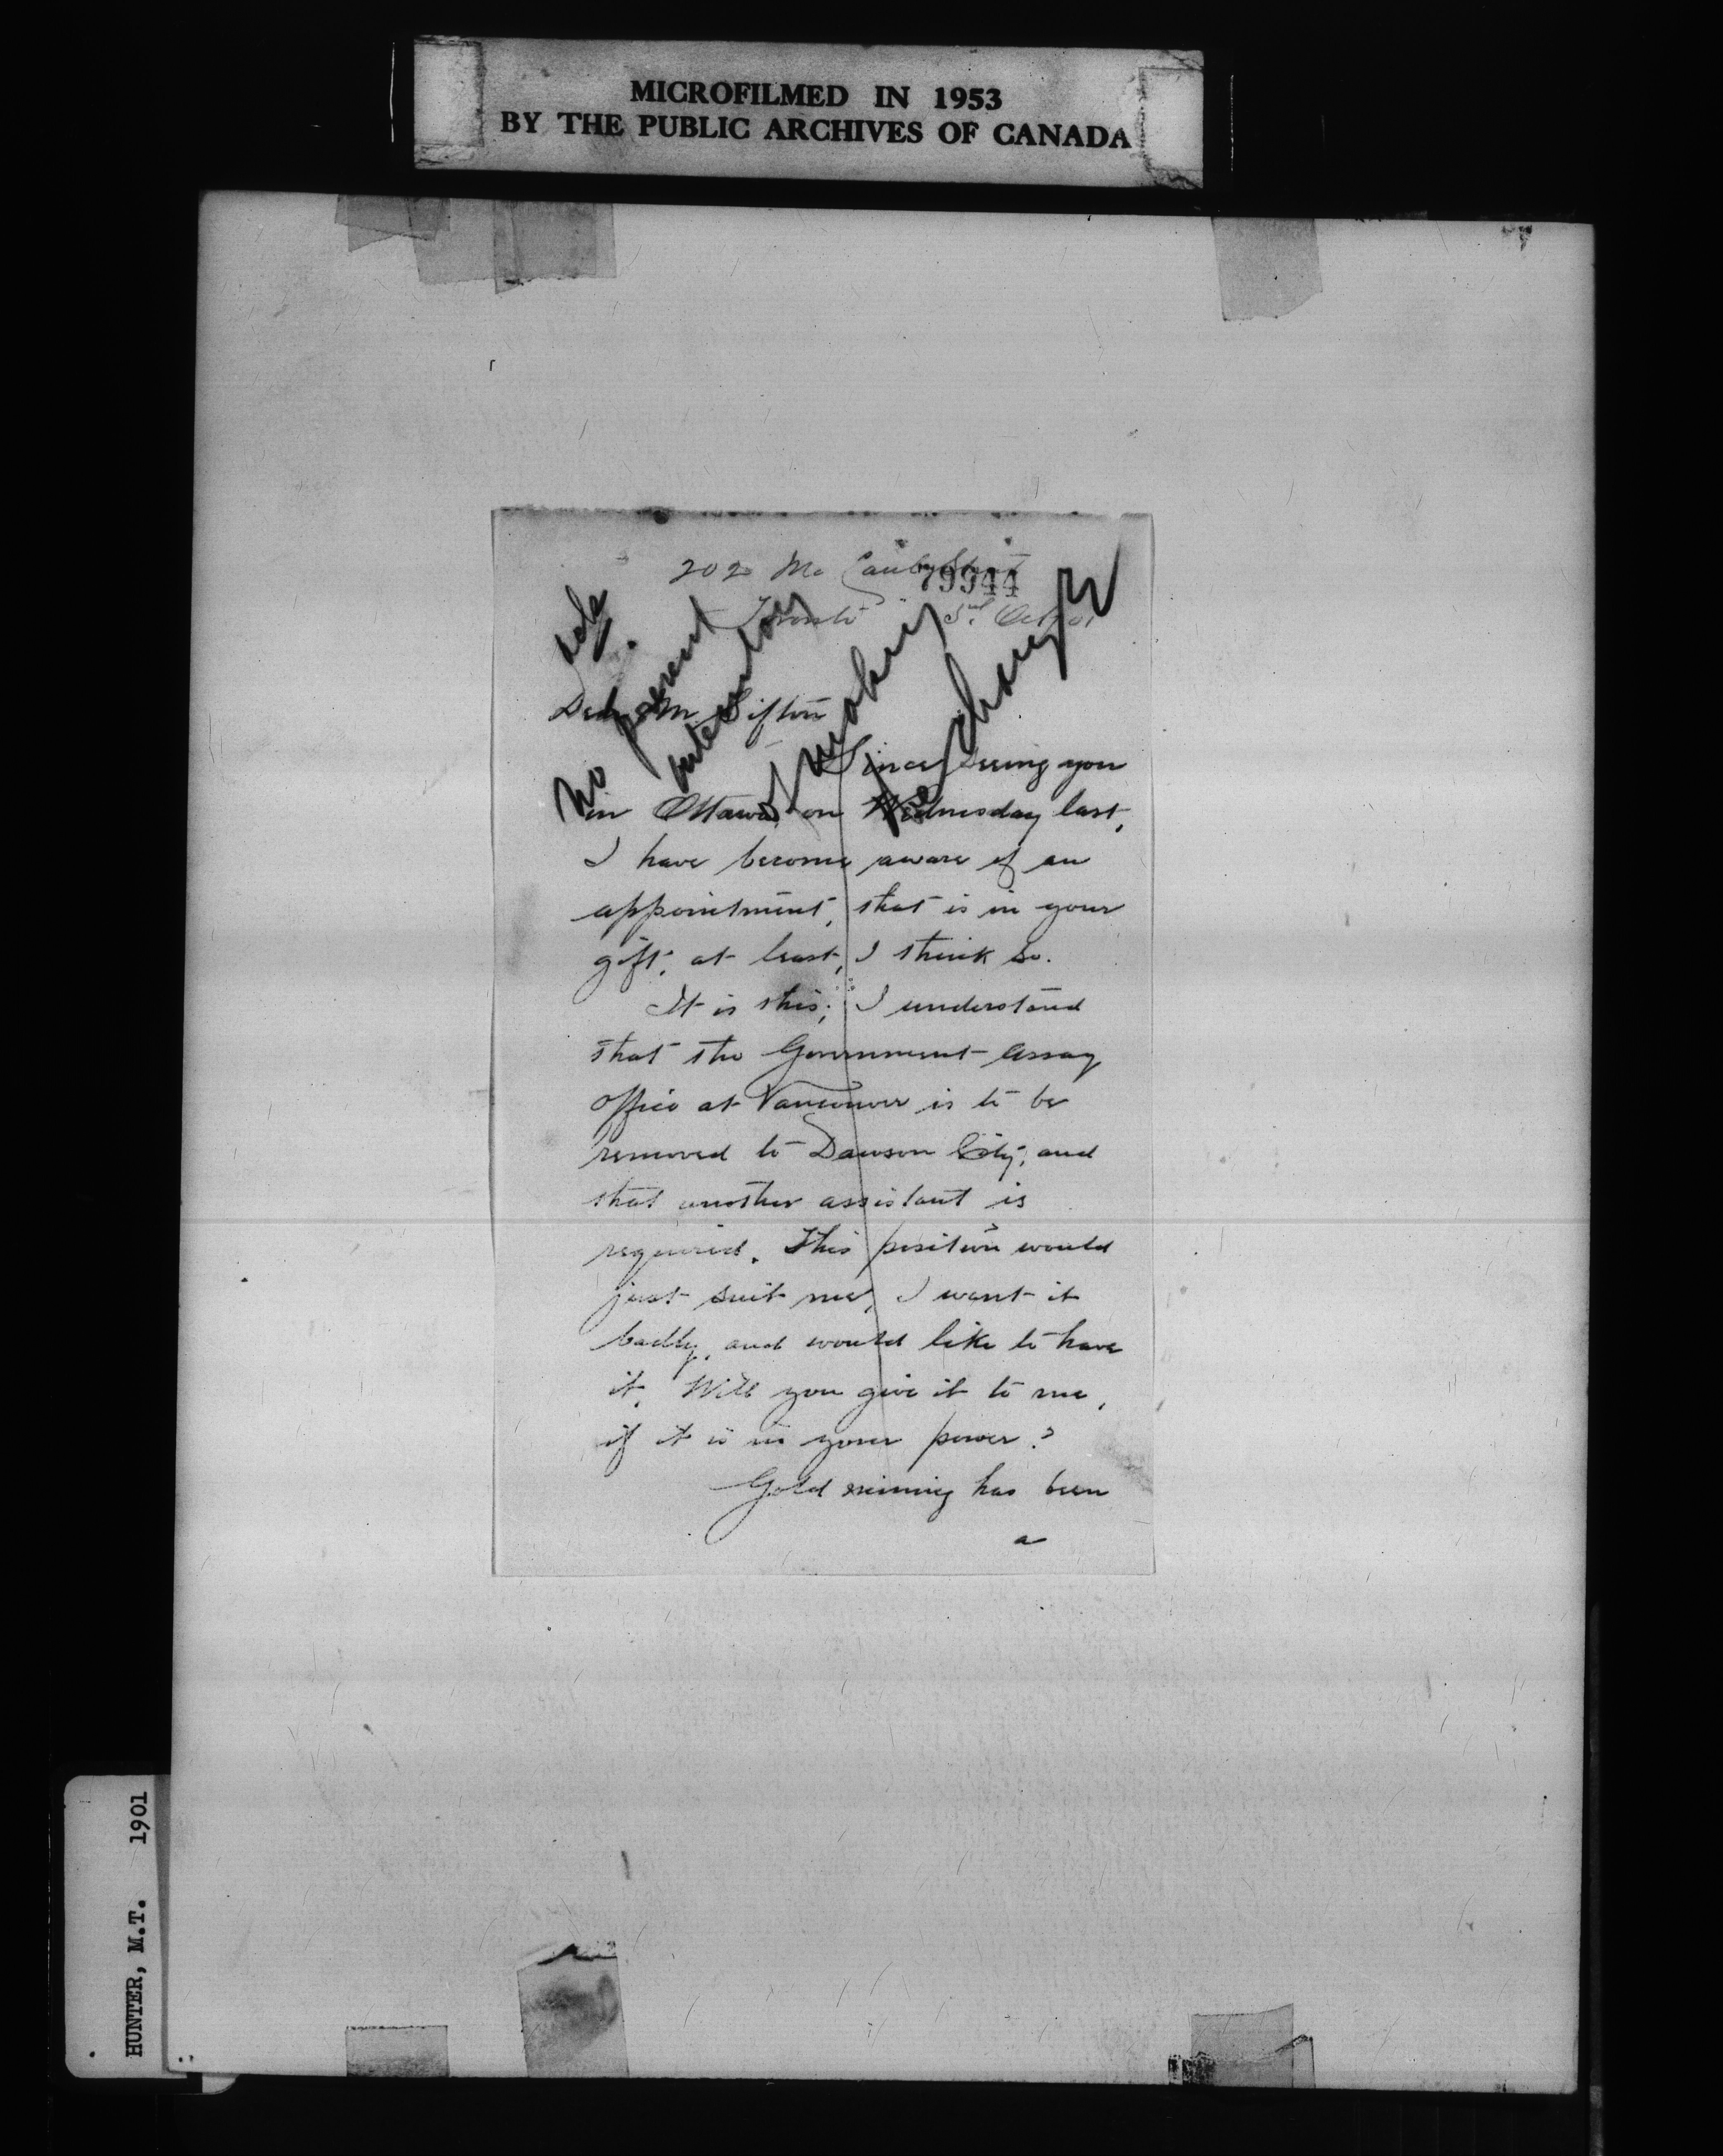 MICROFILMED IN 1953
BY THE PUBLIC ARCHIVES OF CANADA
202 Mc Street
79944
Toronto Oct 01
ack.
No present
intention
of making
the change
Dear Mr Sifton
Since seeing you
in Ottawa, on Wednesday last,
I have become aware of an
appointment, that is in your
gift, at least, I think so.
It is this; I understand
that the Government Assay
office at Vancouver is to be
removed to Dawson City, and
that another assistant is
required. This position would
just suit me, I want it
badly, and would like to have
it. Will you give it to me,
if it is in your power?
Gold mining has been
a
HUNTER, M.T. 1901